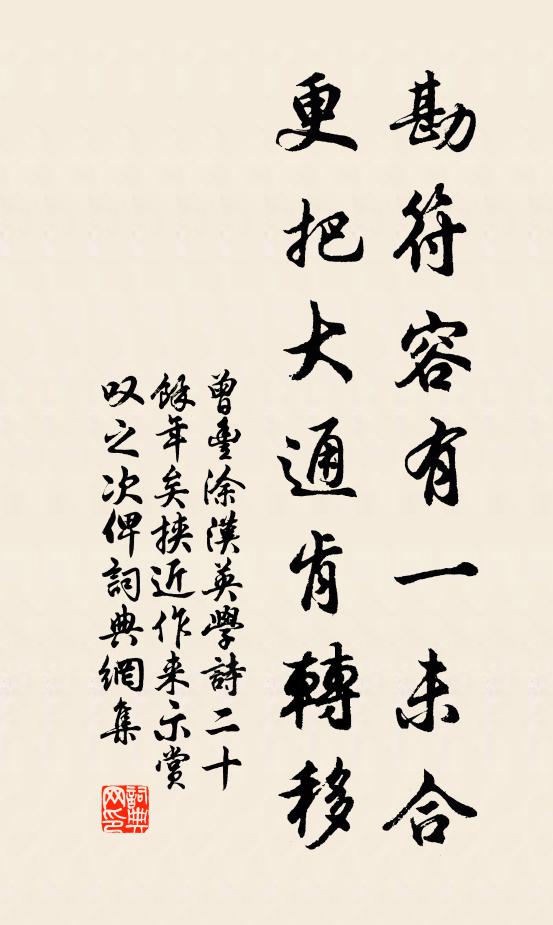 勘符容有一未合
更把大通肯轉移
曾豐涂漢英學詩二十
餘年矣挾近作来示賞
叹之次俾詞典網集
詞典
网印